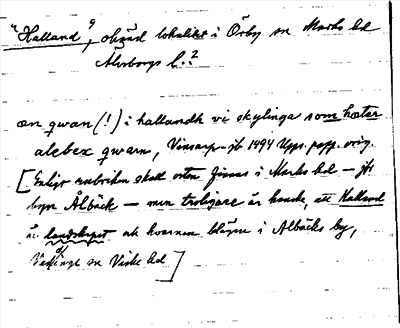 "Halland"?, okänd lokalitet i Örby sn Marks hd
Älvsborgs l.?
æn qwan (!) i hallandh vi skylinga som hæter
alebex qwarn, Vinsarp-jb 1494 Upps. papp. orig.
[Enligt rubriken skall orten finnas i Marks hd – jfr
byn Ålbäck – men troligare är kanske, att Halland
är landskapet och kvarnen belägen i Albäcks by,
Veddinge sn Viske hd]